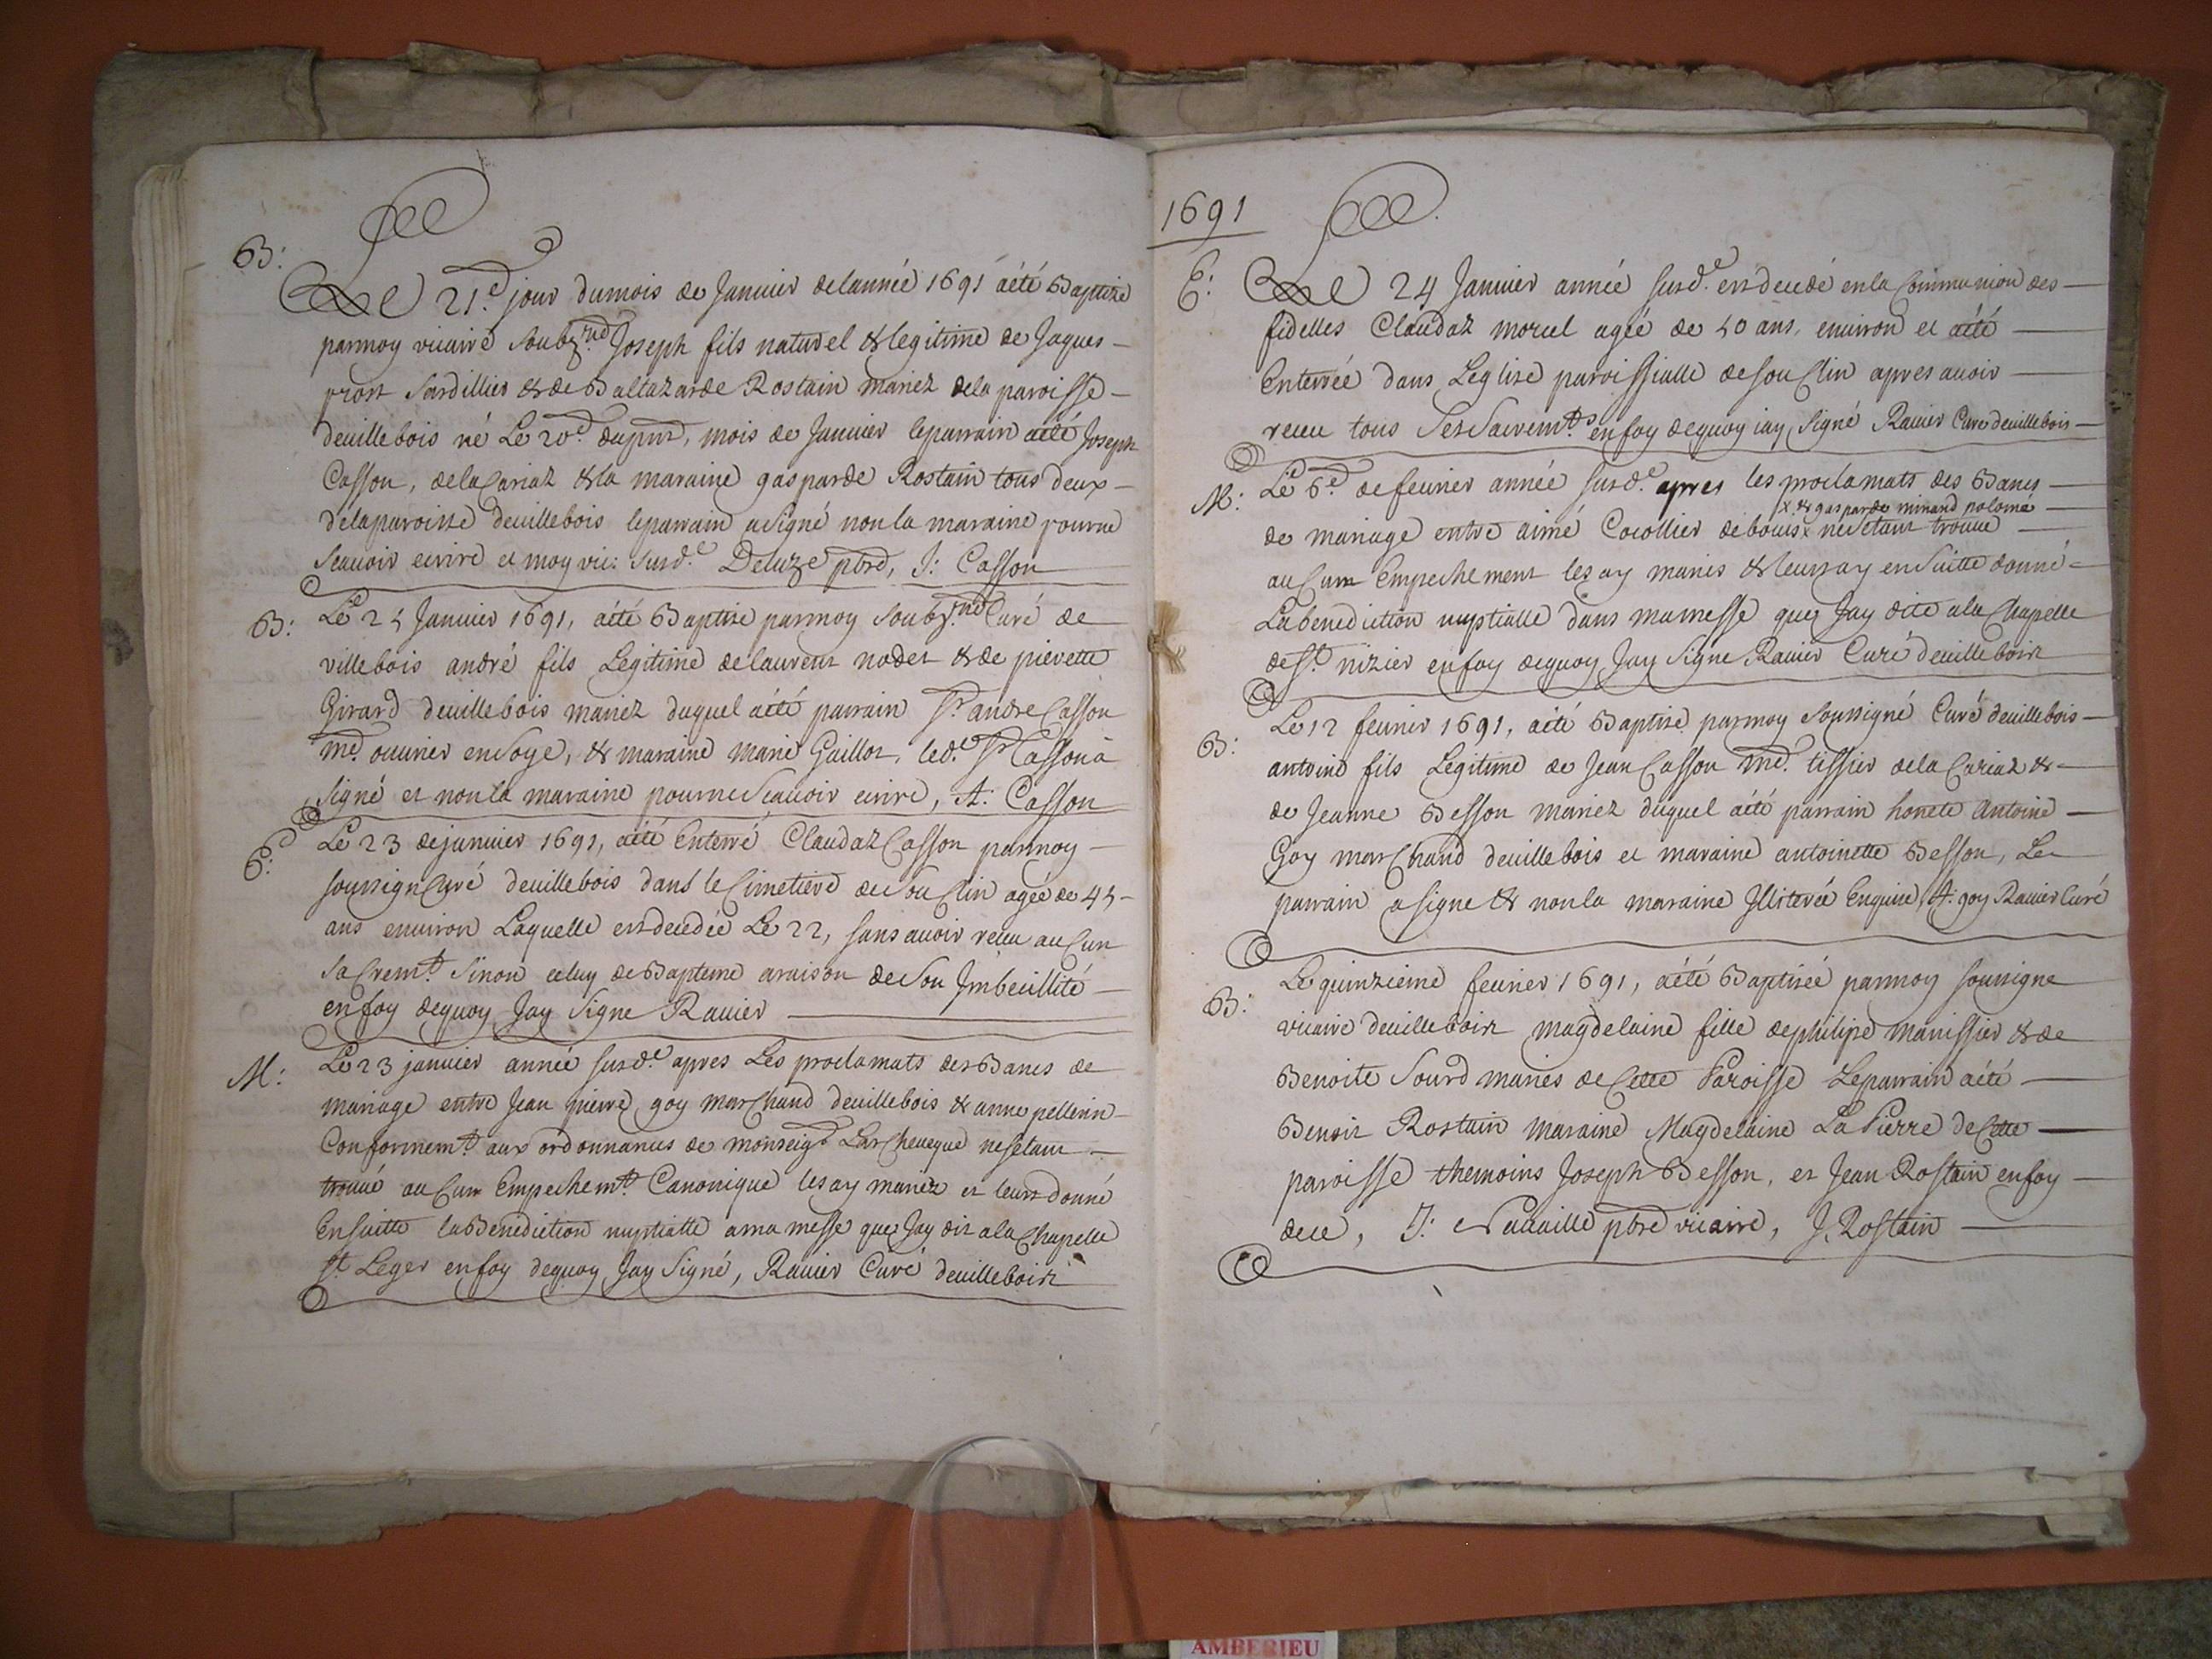 B:
Le 21.e jour du mois de Janvier de lannée 1691 aété Baptizé
parmoy vicaire soubz.né Joseph fils naturel & legitime de Jaques
prost Sardillier & de Baltazarde Rostain mariez dela paroisse
deuillebois né Le 20.e dupnt, mois de Januier leparrain aété Joseph
Casson, dela Cariaz & la maraine gasparde Rostain tous deux
delaparoisse deuillebois leparrain asigné non la maraine pourne
scauoir ecrire et moy vic: susd.e Deluze pbre, J: Casson
B: Le 25 Januier 1691, aété Baptise parmoy soubz.né Curé de
villebois andré fils Legitime delaurent nodet & de pierette
Girard deuillebois mariez duquel aété parrain Sr andre Casson
md. ouurier en soye, & maraine marie Guillot, led.e Sr Casson à
signé et non la maraine pourne scauoir ecrire, A: Casson
E: Le 23 dejanuier 1691, aété Enterré Claudaz Casson parmoy
soussigné Curé deuillebois dans le Cimetiere de Sou Clin agée de 45
ans enuiron Laquelle est decedée Le 22, sans auoir receu au Cun
sa Crem.t sinon celuy de Bapteme araison de son Jmbecillité
enfoy dequoy Jay signe Rauier
M: Le 23 januier année susd.e apres Les proclamats des Bancs de
mariage entre Jean pierre goy mar Chand deuillebois & anne pellerin
Conformem.t aux ordonnances de monseig.r LarCheueque nesetant
trouué au Cun Empechem.t Canonique les ay mariez et leurs donné
Ensuitte la Benediction nuptialle a ma messe que Jay dit ala Chapelle
St Leger enfoy dequoy Jay Signé, Rauier Curé deuillebois
1691
E: Le 24 Januier année susd.e est decedé en la Communion des
fidelles Claudaz morel agée de 50 ans, enuiron et aété
Enterrée dans Leglise paroissialle de sou Clin apres auoir
receu tous Ses Sacrem.ts en foy dequoy iay Signé Rauier Curé deuillebois
M: Le 6.e de feurier année susd.e apres les proclamats des Bancs
x & gasparde minand polomé
de mariage entre aimé Cocollier debouis x nesetant trouué
au Cun Empechement les ay mariés & leurs ay ensuitte donné
La benediction nuptialle dans mamesse que Jay dite ala Chapelle
de St. nizier en foy dequoy Jay signe Rauier Curé deuillebois
B: Le 12 feurier 1691, aété Baptise parmoy soussigné Curé deuillebois
antoine fils Legitime de Jean Casson md. tissier dela Cariaz &
de Jeanne Besson mariez duquel aété parrain honete Antoine
Goy mar Chand deuillebois et maraine antoinette Besson, Le
parrain a signe & non la maraine Jlliterée Enquise, A: goy Rauier Curé
B: Le quinzieme feurier 1691, aété Baptisée parmoy soussigne
vicaire deuillebois magdelaine fille dephilipe manissier & de
Benoite Sourd mariés de Cette Paroisse Leparrain aété
Benoit Rostain maraine Magdelaine La Pierre de Cette
paroisse themoins Joseph Besson, et Jean Rostain enfoy
dece, J: pbre vicaire, J. Rostain
AMBERIEU